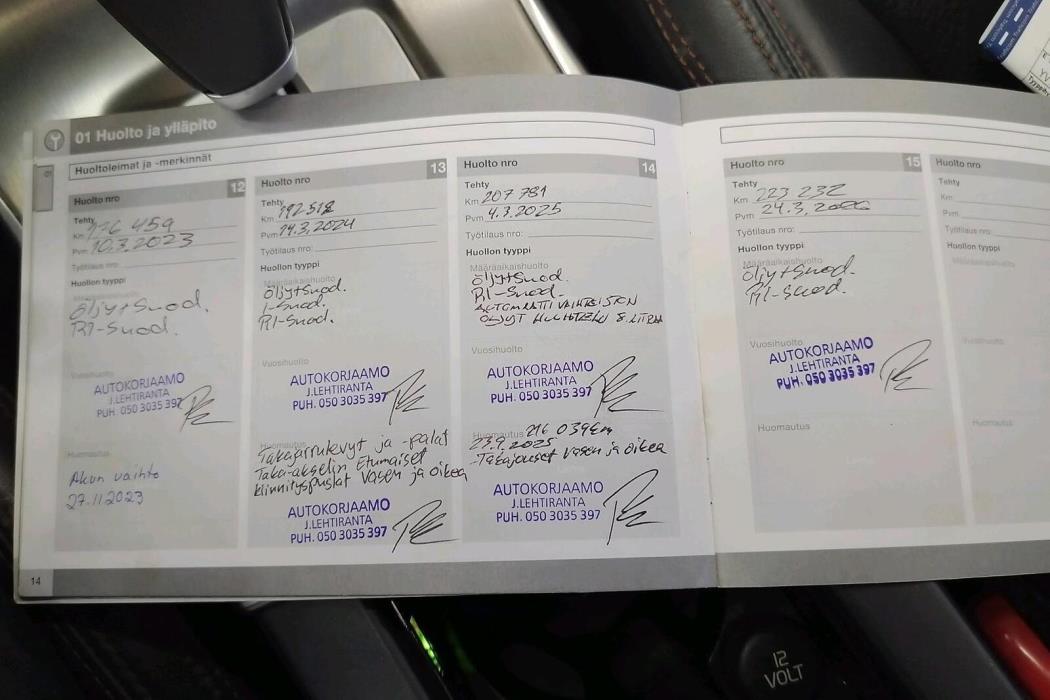 01 Huolto ja ylläpito
Huoltoleimat ja -merkinnät
Huolto nro 12
Tehty
Km 176 459
Pvm 10.3.2023
Työtilaus nro:
Huollon tyyppi
Öljy+Suod.
RI-Suod.
Vuosihuolto
AUTOKORJAAMO
J.LEHTIRANTA
PUH. 050 3035 397
Huomautus
Akun vaihto
27.11.2023
Huolto nro 13
Tehty
Km 192518
Pvm 14.3.2024
Työtilaus nro:
Huollon tyyppi
Määräaikaishuolto
Öljy+Suod.
I-Suod.
RI-Suod.
Vuosihuolto
AUTOKORJAAMO
J.LEHTIRANTA
PUH. 050 3035 397
Huomautus
Takajarrulevyt ja -palat
Taka-akselin Etumaiset
kiinnityspuslat Vasen ja oikea
AUTOKORJAAMO
J.LEHTIRANTA
PUH. 050 3035 397
Huolto nro 14
Tehty
Km 207 781
Pvm 4.3.2025
Työtilaus nro:
Huollon tyyppi
Määräaikaishuolto
Öljy+Suod.
RI-Suod.
AUTOMAATTI VAIHTEISTON
ÖLJYT HUUHTELU 8. LITRAA
Vuosihuolto
AUTOKORJAAMO
J.LEHTIRANTA
PUH. 050 3035 397
Huomautus 216 039km
23.9.2025
-Takajouset Vasen ja oikea
AUTOKORJAAMO
J.LEHTIRANTA
PUH. 050 3035 397
14
Huolto nro 15
Tehty
Km 223 232
Pvm 24.3.2026
Työtilaus nro:
Huollon tyyppi
Määräaikaishuolto
Öljy+Suod.
RI-Suod.
Vuosihuolto
AUTOKORJAAMO
J.LEHTIRANTA
PUH. 050 3035 397
Huomautus
Huolto nro
Tehty
Km
Pvm
Työtilaus nro:
Huollon tyyppi
Määräaikaishuolto
Vuosihuolto
Huomautus
12
VOLT